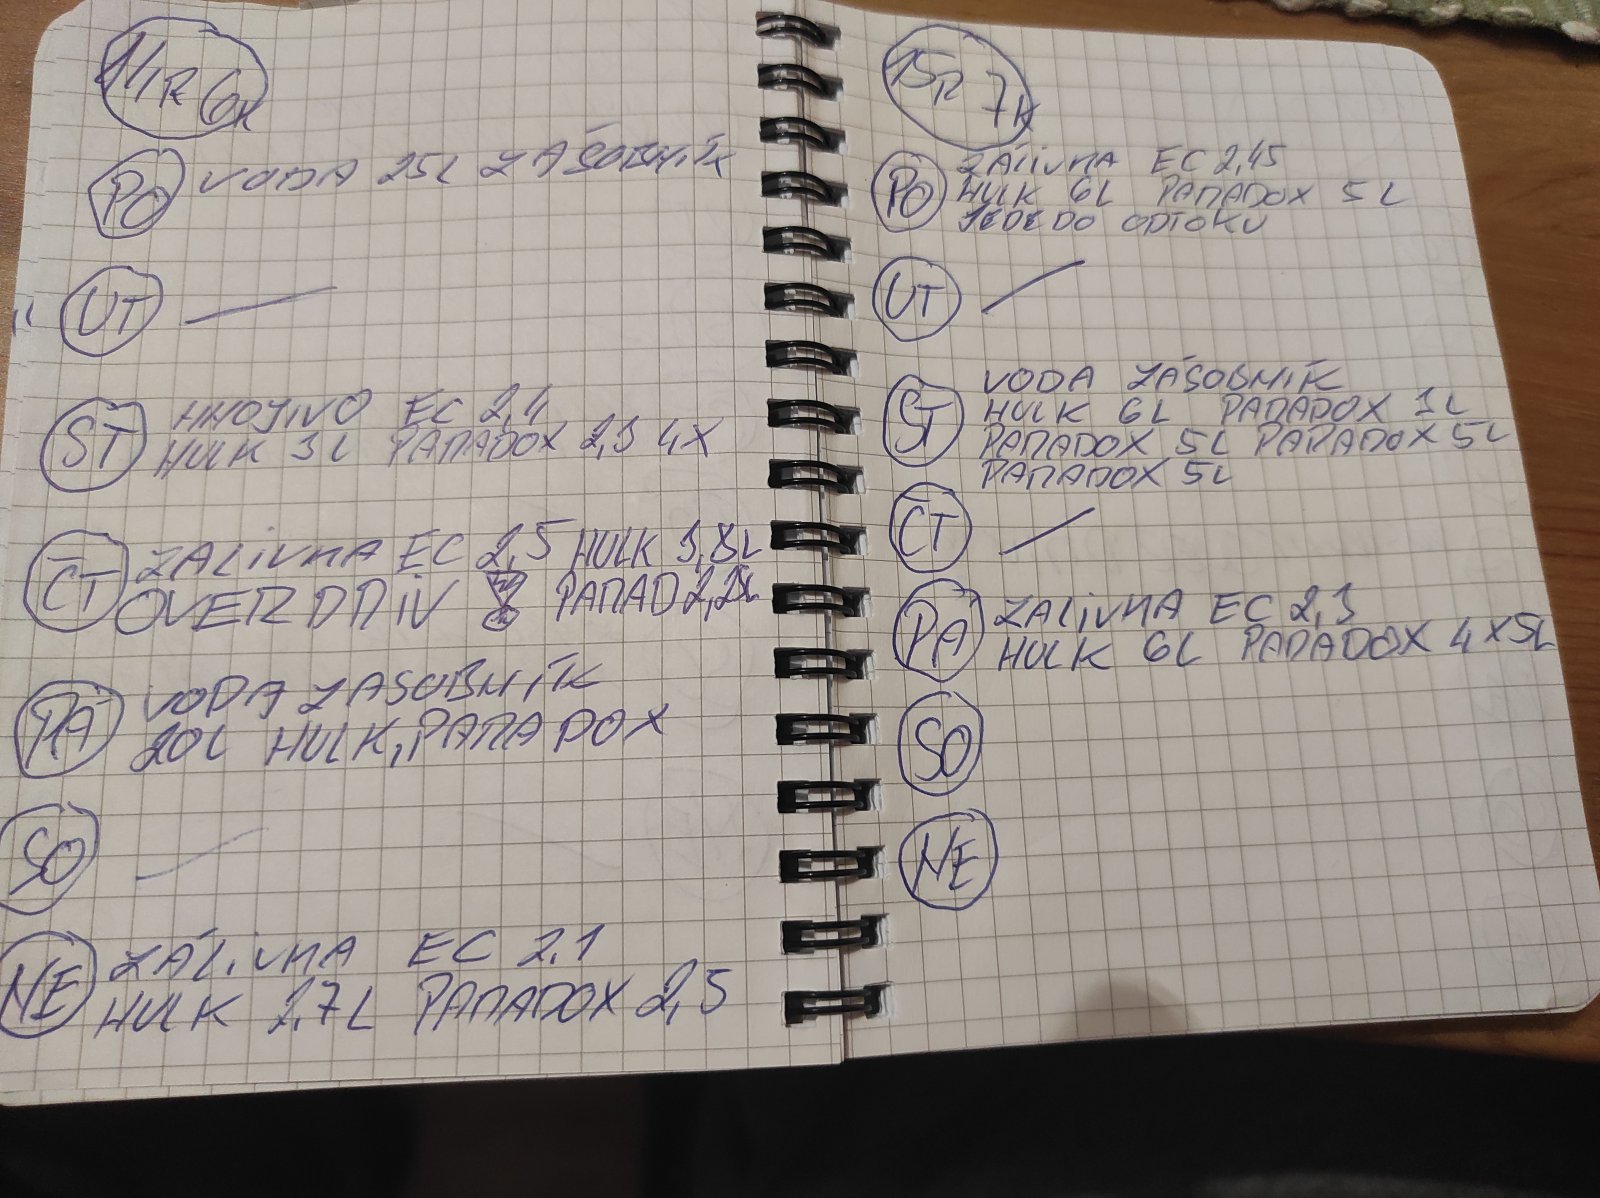 R 6K
PO VODA 25L ZÁSOBNÍK
UT —
ST HNOJIVO EC 2,4
HULK 3L PARADOX 2,3 4X
ČT ZALIVKA EC 2,5 HULK 3,8L
OVERDRIV PARAD 2,25L
PÁ VODA ZASOBNÍK
20L HULK, PARADOX
SO —
NE ZÁLIVKA EC 2,1
HULK 2,7L PARADOX 2,5
15R 7K
PO ZÁLIVKA EC 2,45
HULK 6L PARADOX 5L
JEDE DO ODTOKU
UT —
ST VODA ZÁSOBNÍK
HULK 6L PARADOX 1L
PARADOX 5L PARADOX 5L
PARADOX 5L
ČT —
PA ZALIVKA EC 2,3
HULK 6L PARADOX 4X5L
SO
NE